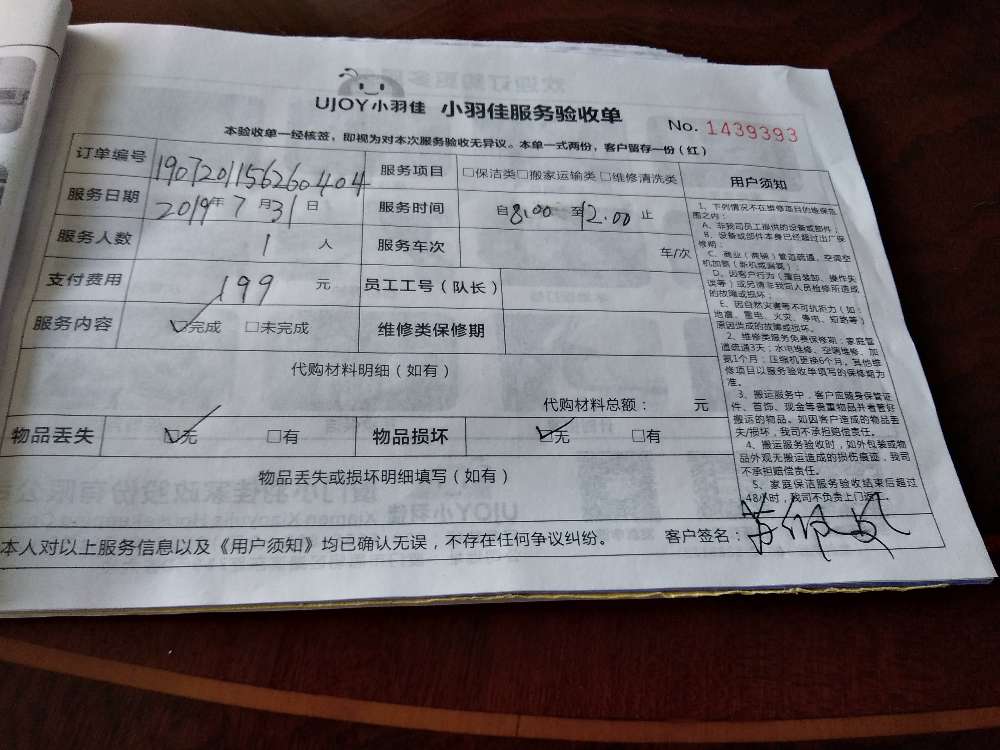 UJOY小羽佳 小羽佳服务验收单 No. 1439393
本验收单一经核签，即视为对本次服务验收无异议。本单一式两份，客户留存一份（红）
订单编号 1907201156260404 服务项目 □保洁类□搬家运输类□维修清洗类 用户须知
服务日期 2019年 7月31日 服务时间 自8:00 至12:00 止
服务人数 1 人 服务车次 车/次
支付费用 199 元 员工工号（队长）
服务内容 ☑完成 □未完成 维修类保修期
代购材料明细（如有）
代购材料总额： 元
物品丢失 ☑无 □有 物品损坏 ☑无 □有
物品丢失或损坏明细填写（如有）
1、下列情况不在维修项目的维保范
围之内：
A、非我司员工提供的设备或部件；
B、设备或部件本身已经超过出厂保
修期；
C、商业（店铺）管道疏通，空调空
机加氨（新机或漏氨）；
D、因客户行为（擅自装卸、操作失
误等）或另请非我司人员检修所造成
的故障或损坏；
E、因自然灾害等不可抗拒力（如：
地震、雷电、火灾、停电、短路等）
原因造成的故障或损坏。
2、维修类服务免费保修期：家庭管
道疏通3天；水电维修、空调维修、加
氨1个月；压缩机更换6个月。其他维
修项目以服务验收单填写的保修期为
准。
3、搬运服务中，客户应随身保管证
件、首饰、现金等贵重物品并看管好
搬运的物品。如因客户造成的物品丢
失/损坏，我司不承担赔偿责任。
4、搬运服务验收时，如外包装或物
品外观无搬运造成的损伤痕迹，我司
不承担赔偿责任。
5、家庭保洁服务验收结束后超过
48小时，我司不负责上门返工。
本人对以上服务信息以及《用户须知》均已确认无误，不存在任何争议纠纷。 客户签名：